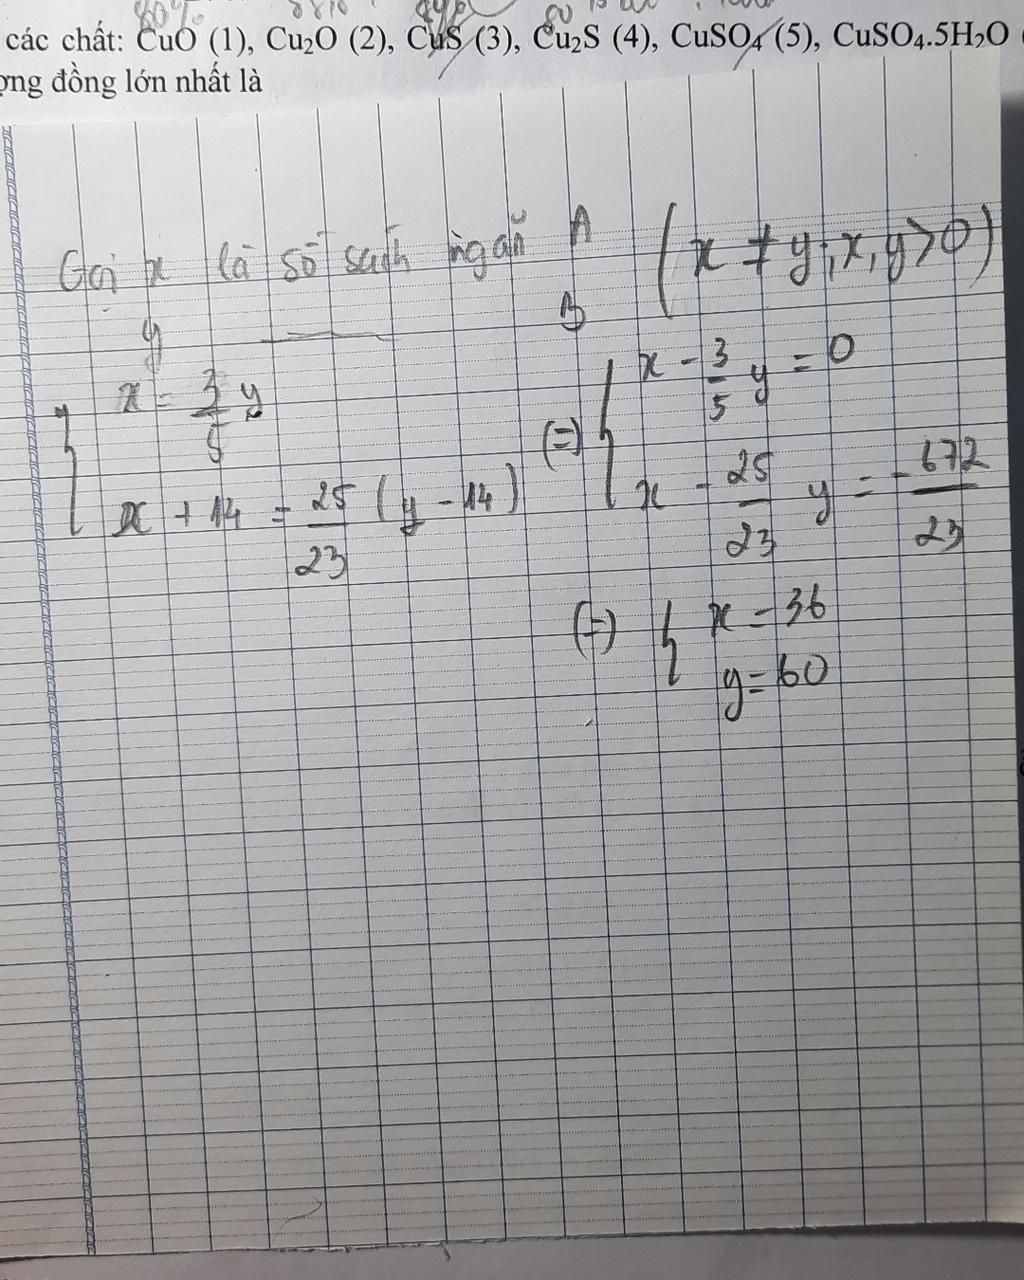 80%
các chất: CuO (1), Cu₂O (2), CuS (3), Cu₂S (4), CuSO₄ (5), CuSO₄.5H₂O
ợng đồng lớn nhất là
Gọi x là số sách ngăn A (x ≠ y; x, y > 0)
y ——— B
{ x = 3/5 y
x + 14 = 25/23 (y - 14)
(=) { x - 3/5 y = 0
x - 25/23 y = -672/23
(=) { x = 36
y = 60